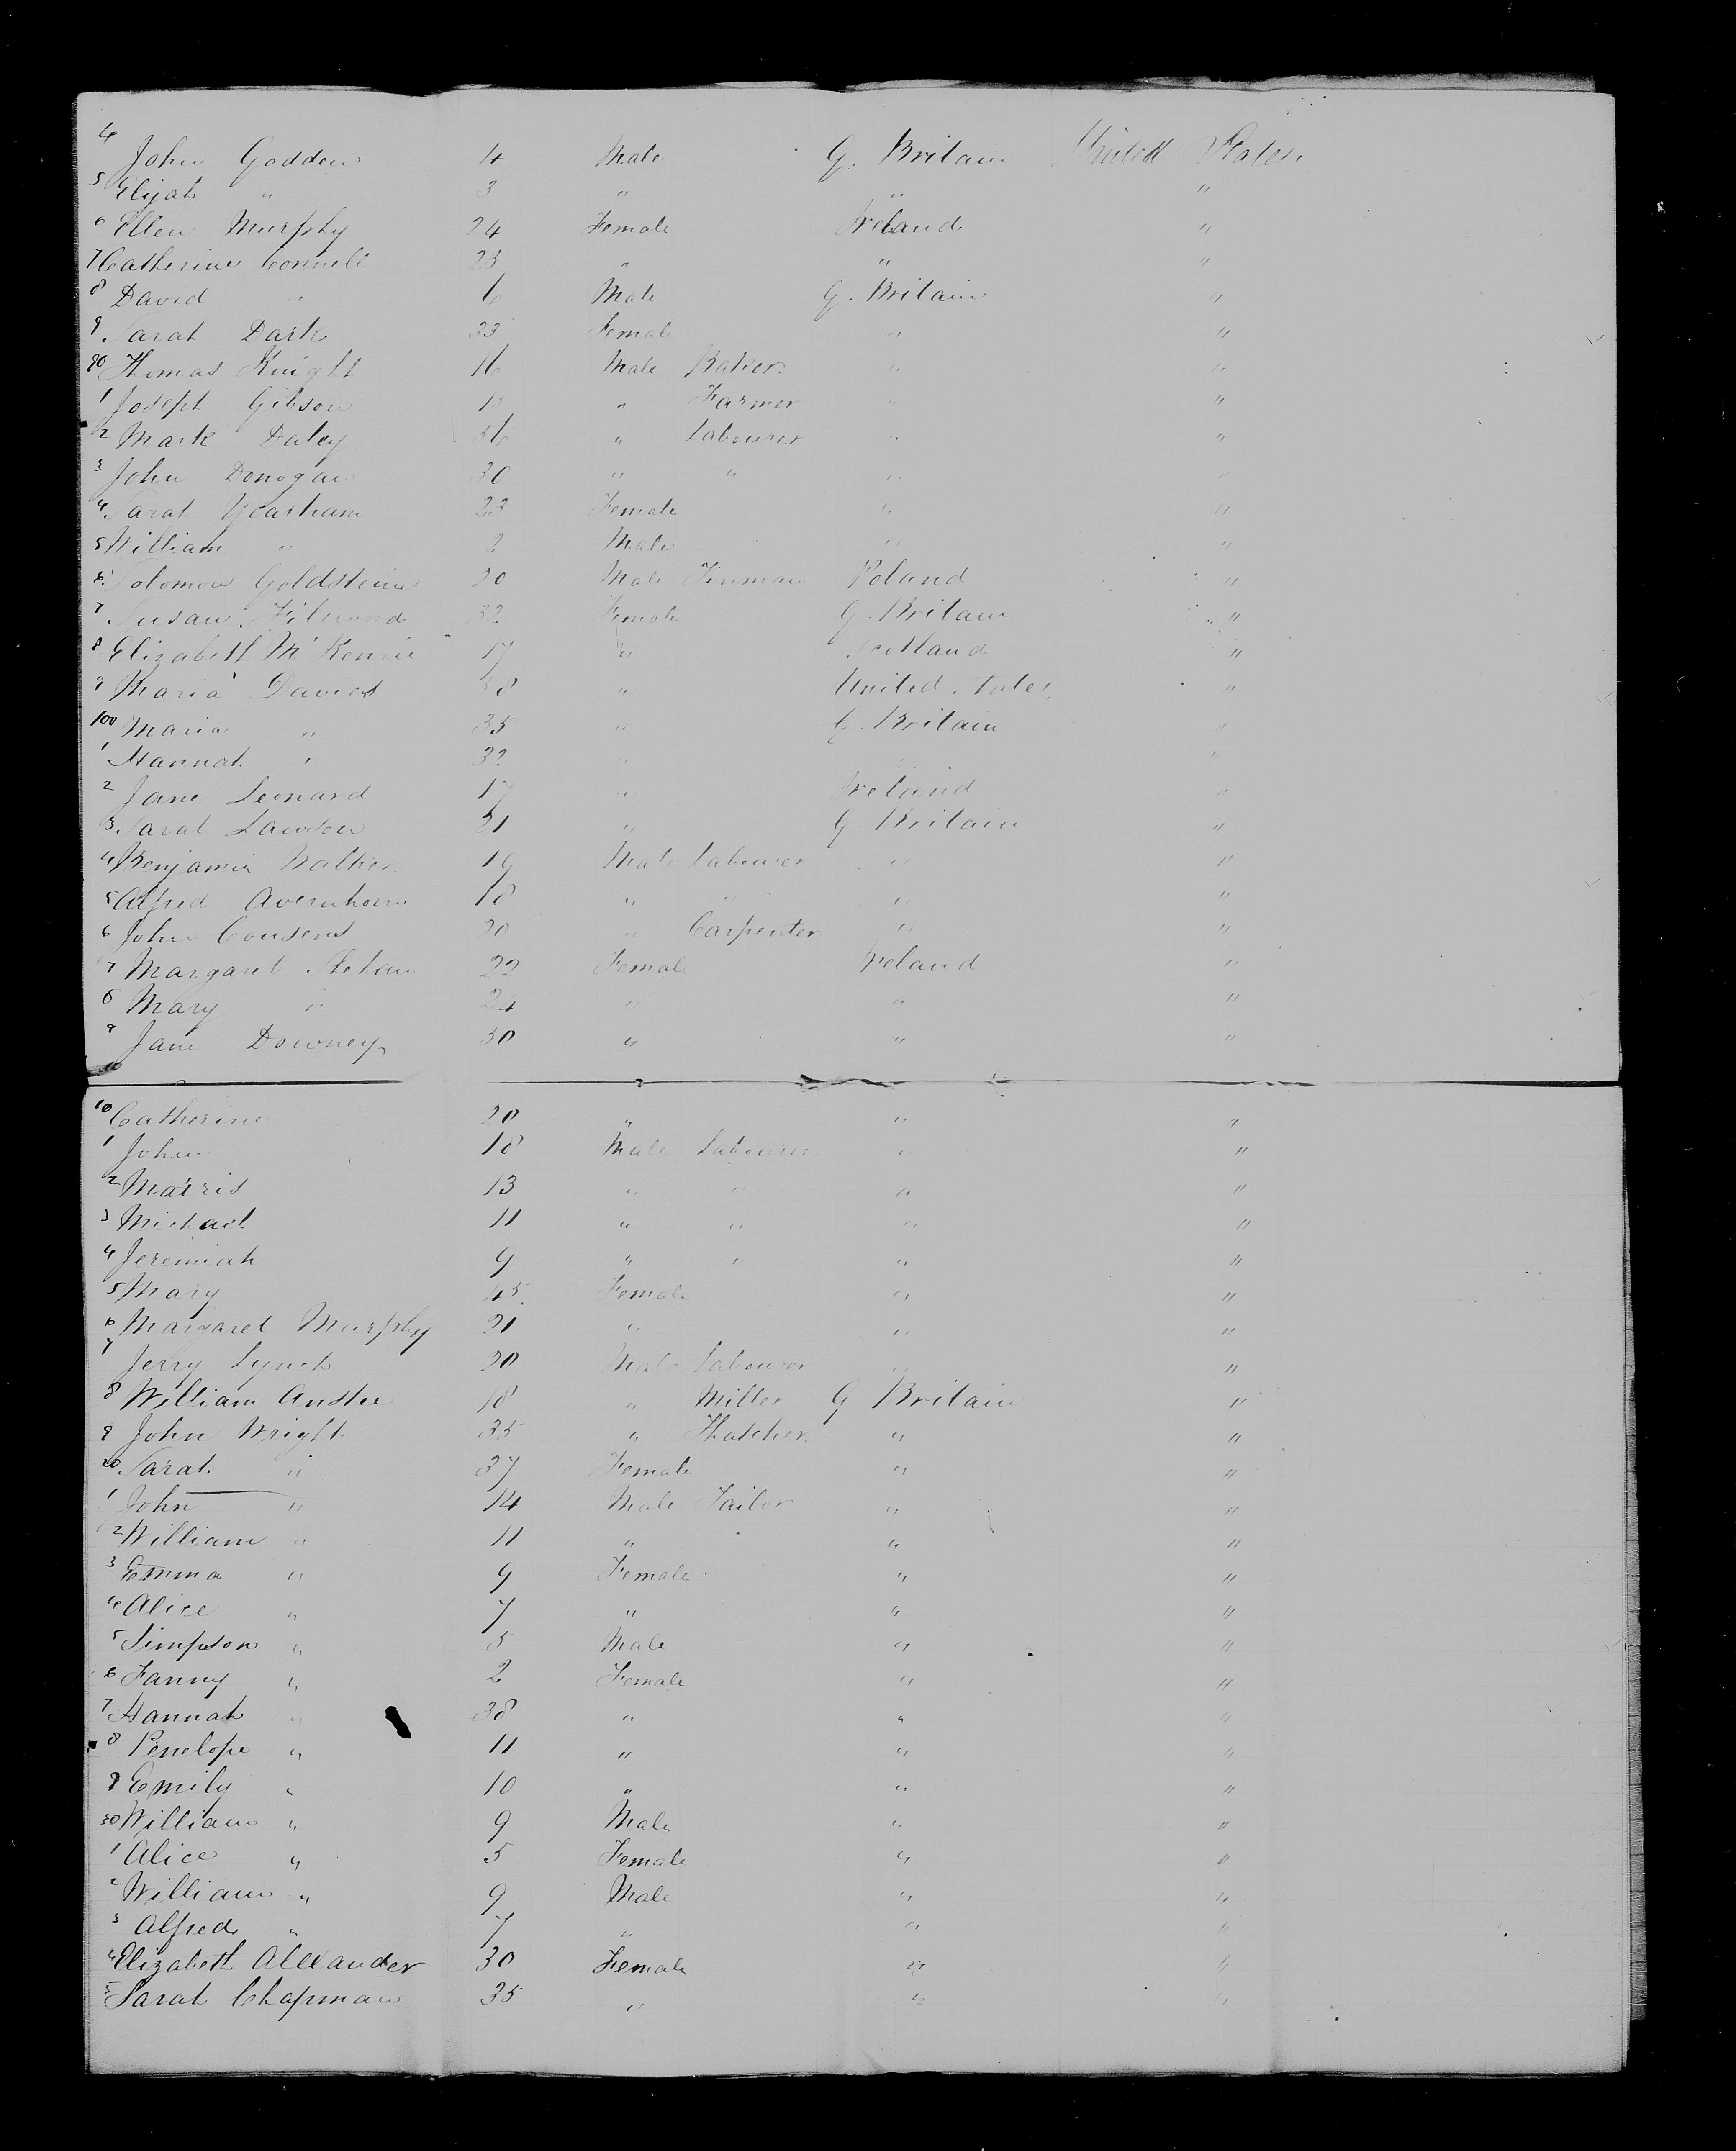 4 John Godden 4 Male G. Britain United States
5 Elijah " 3 " " "
6 Ellen Murphy 24 Female Ireland "
7 Catherine Connell 23 " " "
8 David " 6 Male G. Britain "
9 Sarah Dark 23 Female " "
90 Thomas Knight 16 Male Baker " "
1 Joseph Gibson " Farmer " "
2 Mark Daley 36 " Labourer " "
3 John Donogan 30 " " " "
4 Sarah Yearham 23 Female " "
5 William " 2 Male " "
6 Solomon Goldsteine 20 Male Tinman Poland "
7 Susan 32 Female G. Britain "
8 Elizabeth McKenzie 17 " Scotland "
9 Maria Davies 38 " United States "
100 Maria " 35 " G. Britain "
1 Hannah " 32 " " "
2 Jane Leonard 17 " Ireland "
3 Sarah Lawson 21 " G Britain "
4 Benjamin Walker 19 Male Labourer " "
5 Alfred 18 " " " "
6 John Cousens 20 " Carpenter " "
7 Margaret Shehan 22 Female Ireland "
8 Mary " 24 " " "
9 Jane Downey 30 " " "
10 Catherine 20 " " "
1 John 18 Male Labourer " "
2 Morris 13 " " " "
3 Michael 11 " " " "
4 Jeremiah 9 " " " "
5 Mary 45 Female " "
6 Margaret Murphy 21 " " "
7 Jerry Lynch 20 Male Labourer " "
8 William Anstee 18 " Miller G Britain "
9 John Wright 35 " Thatcher " "
20 Sarah " 37 Female " "
1 John " 14 Male Tailor " "
2 William " 11 " " "
3 Emma " 9 Female " "
4 Alice " 7 " " "
5 Simpson " 5 Male " "
6 Fanny " 2 Female " "
7 Hannah " 38 " " "
8 Penelope " 11 " " "
9 Emily " 10 " " "
30 William " 9 Male " "
1 Alice " 5 Female " "
2 William " 9 Male " "
3 Alfred " 7 " " "
4 Elizabeth Alexander 30 Female " "
5 Sarah Chapman 35 " " "